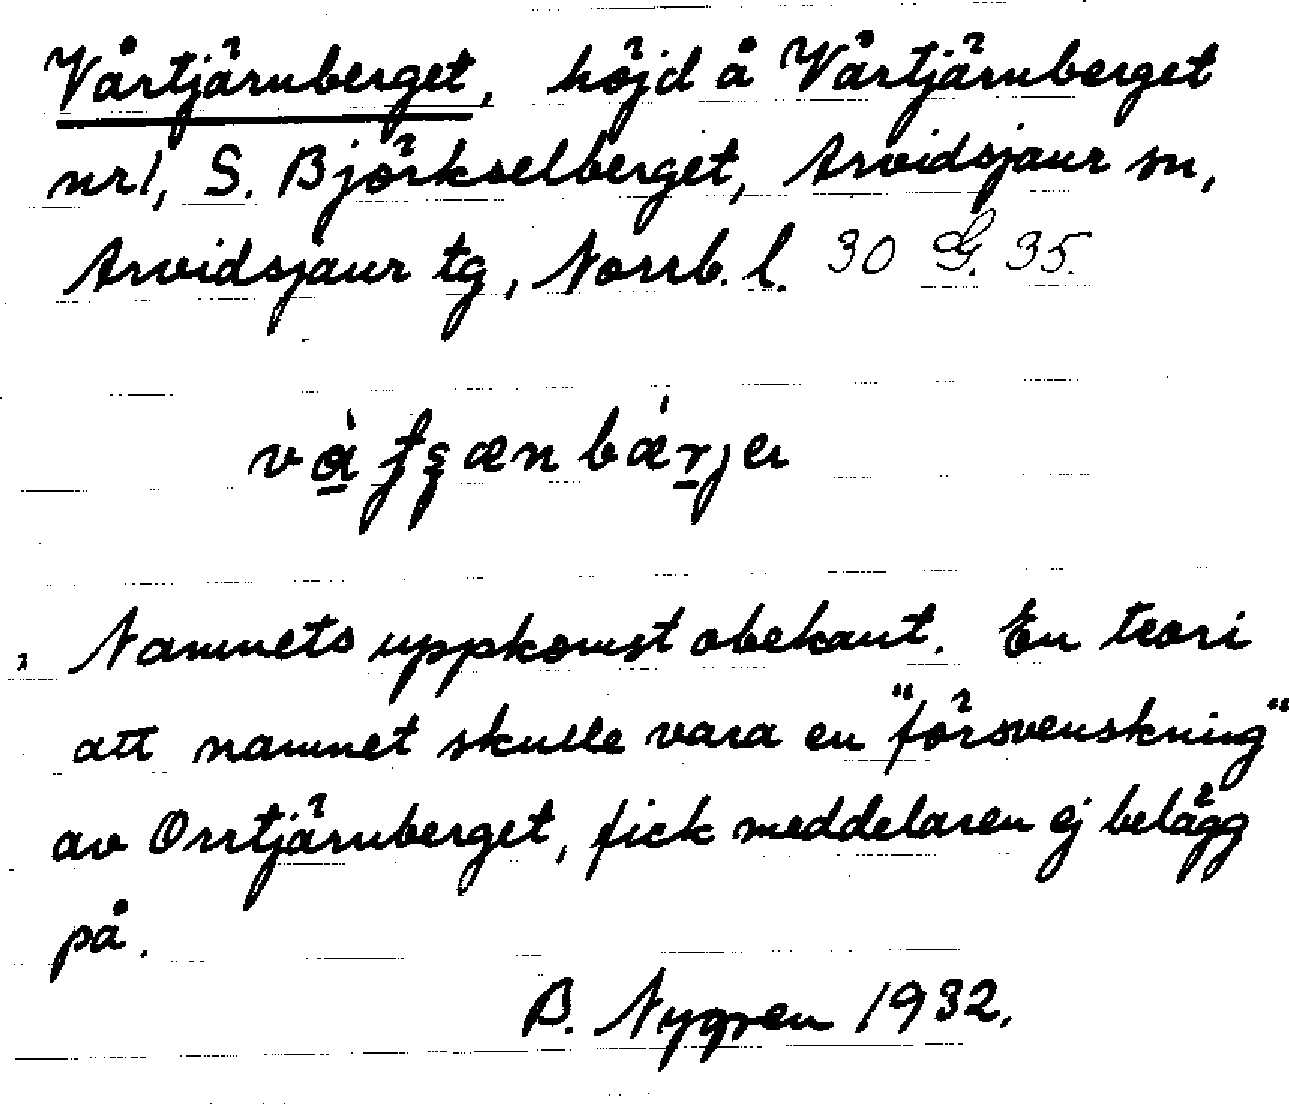 Vårtjärnberget, höjd å Vårtjärnberget
nr1, S. Björkselberget, Arvidsjaur sn,
Arvidsjaur tg, Norrb. l. 30 G. 35.
Namnets uppkomst obekant. En teori
att namnet skulle vara en "försvenskning"
av Orrtjärnberget, fick meddelaren ej belägg
på.
B. Nygren 1932.